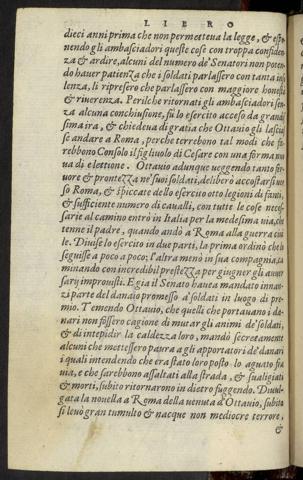 LIBRO
dieci anni prima che non permetteua la legge, & espo
nendo gli ambasciadori queste cose con troppa confiden
za & ardire, alcuni del numero de' Senatori non poten
do hauer patienza che i soldati parlassero con tanta inso
lenza, li ripresero che parlassero con maggiore honestà
& riuerenza. Perilche ritornati gli ambasciadori sen
za alcuna conchiusione, fu lo esercito acceso da grandis
sima ira, & chiedeua di gratia che Ottauio gli lascias
se andare a Roma, perche terrebono tal modi che fa
rebbono Consolo il figliuolo di Cesare con una forma nuo
ua di elettione. Ottauio adunque ueggendo tanto fer
uore & prontezza ne' suoi soldati, deliberò accostarsi uer
so Roma, & spiccate dello esercito otto legioni di fanti,
& sufficiente numero di caualli, con tutte le cose neces
sarie al camino entrò in Italia per la medesima uia, che
tenne il padre, quando andò a Roma alla guerra ciui
le. Diuise lo esercito in due parti, la prima ordinò che lo
seguisse a poco a poco; l'altra menò in sua compagnia, ca
minando con incredibil prestezza per giugner gli auuer
sary improuisi. E gia il Senato hauea mandato innan
zi parte del danaio promesso a' soldati in luogo di pre
mio. Temendo Ottauio, che quelli che portauano i da-
nari non fossero cagione di mutar gli animi de' soldati,
& di intepidir la caldezza loro, mandò secretamente
alcuni che mettessero paura a gli apportatori de' danari
i quali intendendo che era stato loro posto lo aguato fra
uia, e che sarebbono assaltati alla strada, & sualigiati
& morti, subito ritornarono in dietro fuggendo. Diuul
gata la nouella a Roma della uenuta d'Ottauio, subito
si leuò gran tumulto & nacque non mediocre terrore,
&